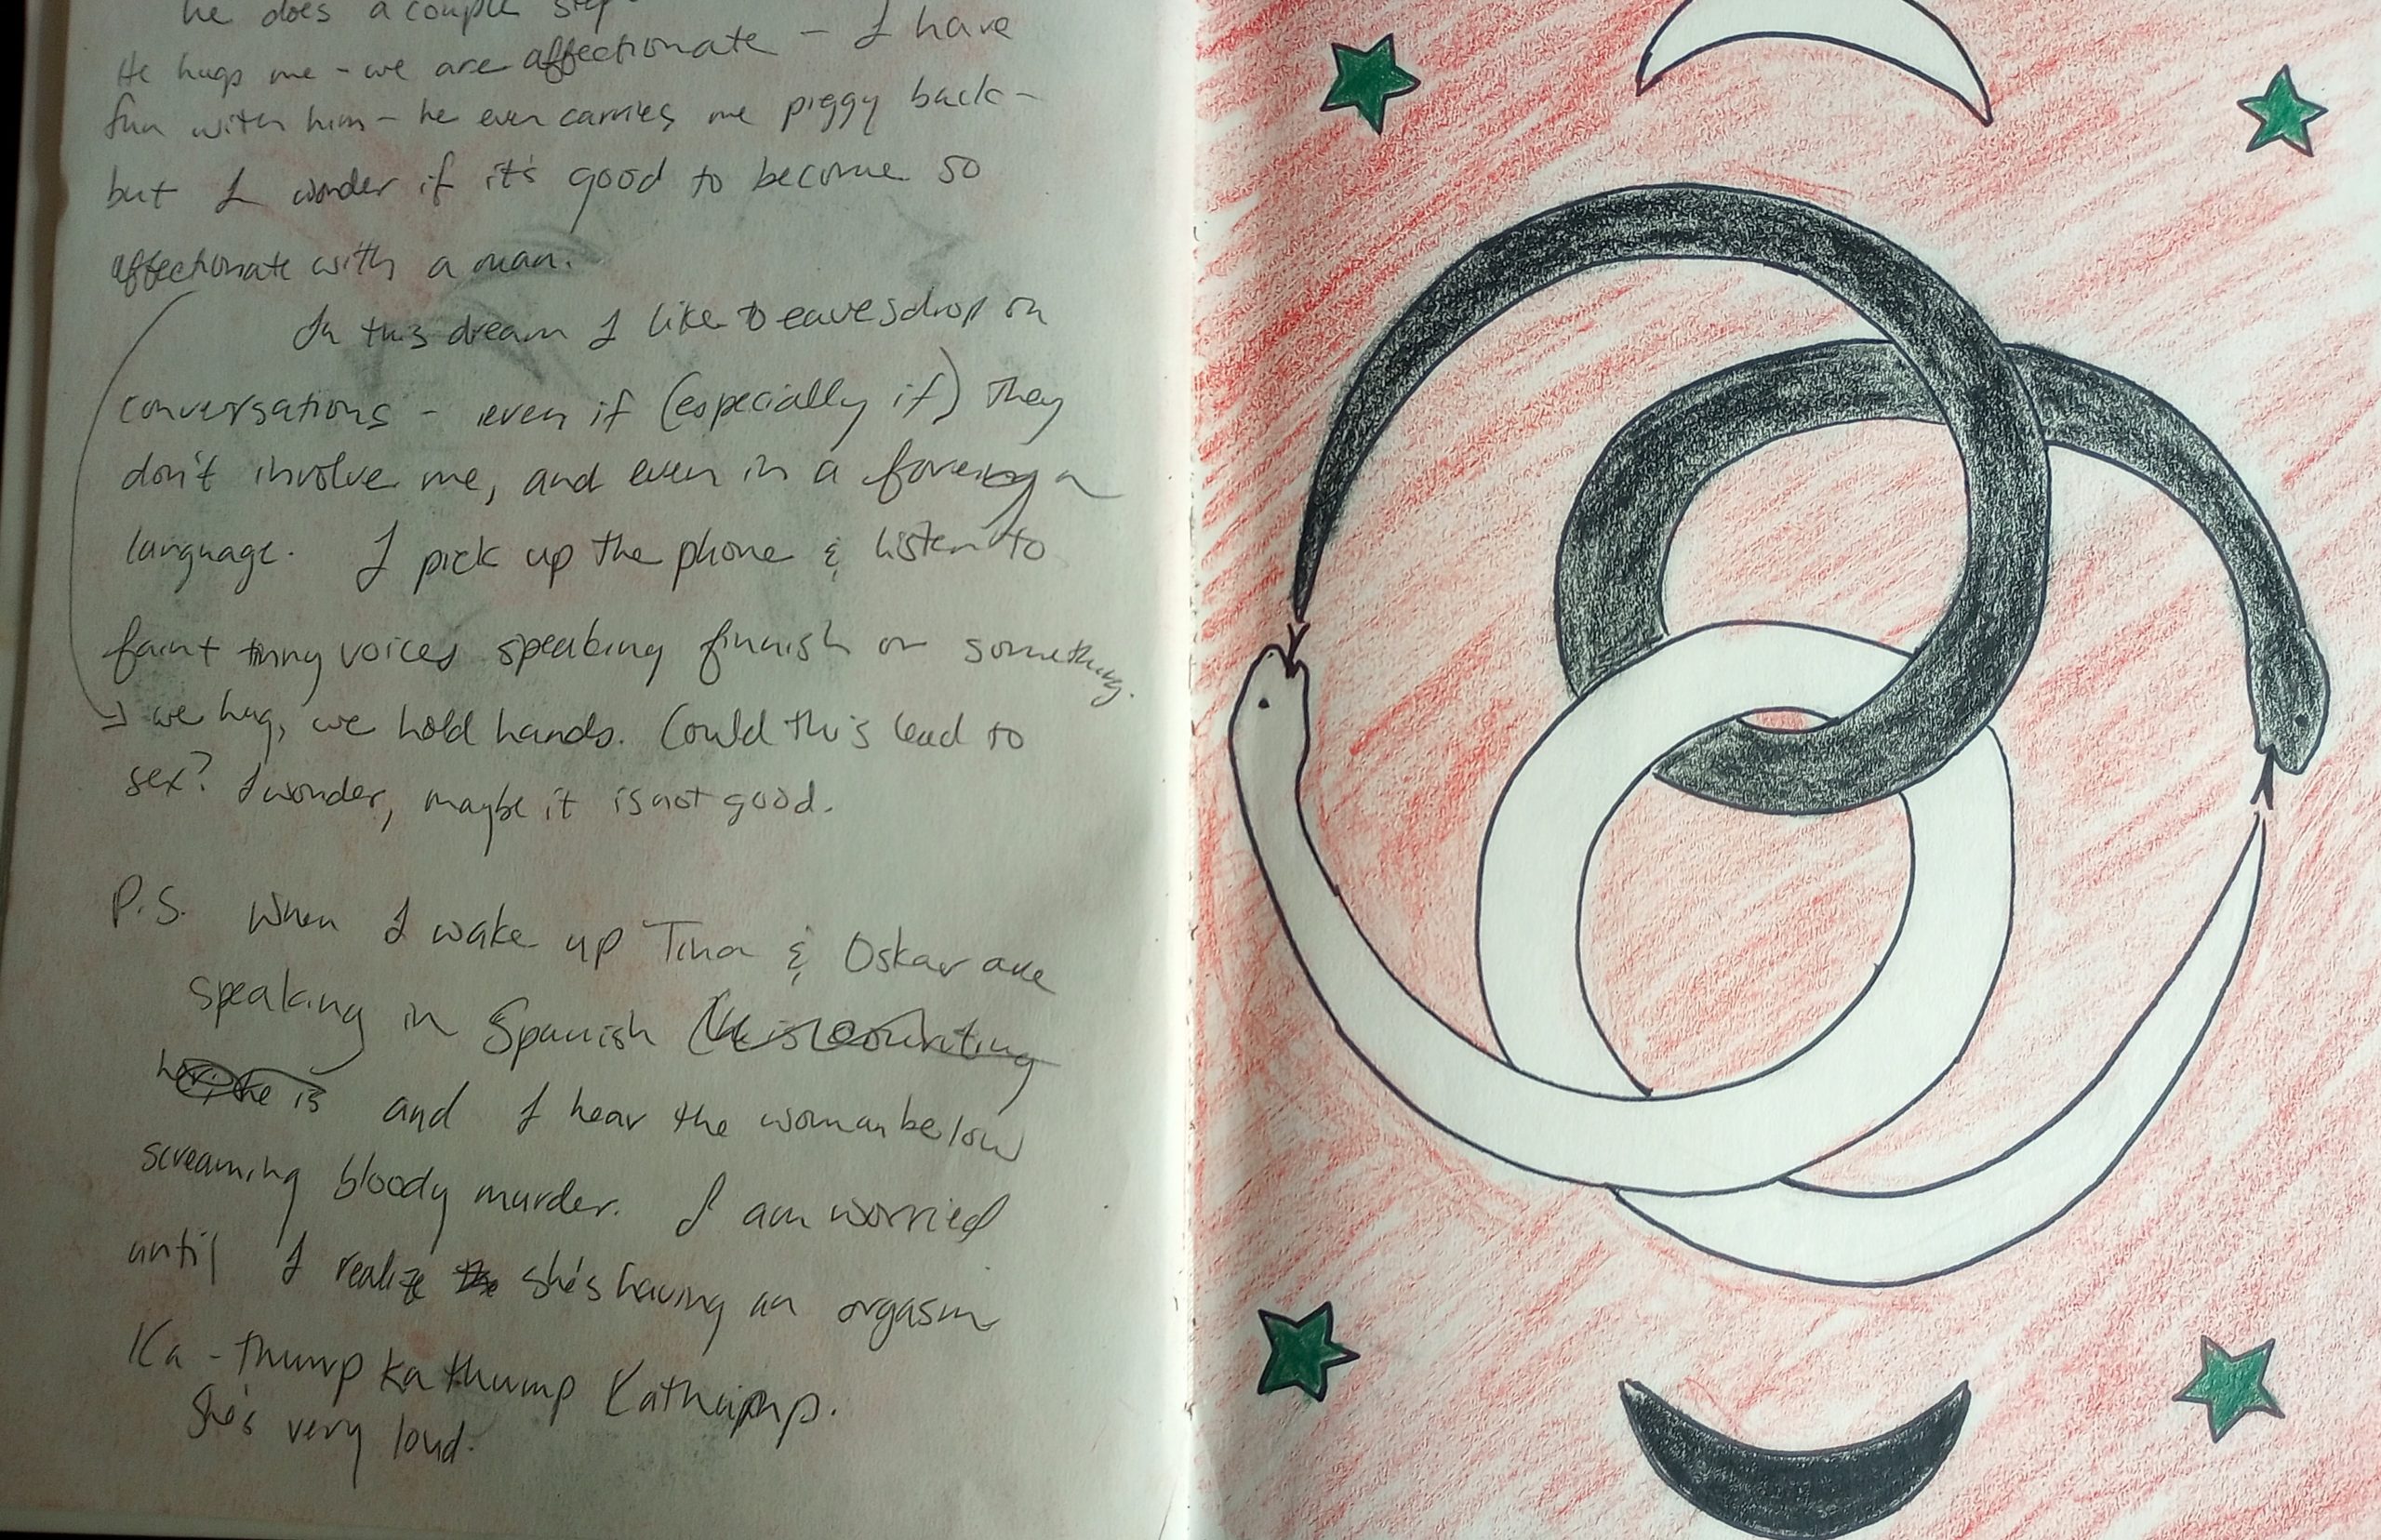 he does a couple step
He hugs me - we are affectionate - I have
fun with him - he even carries me piggy back -
but I wonder if it's good to become so
affectionate with a man.
In this dream I like to eavesdrop on
conversations - even if (especially if) they
don't involve me, and even in a foreign
language. I pick up the phone & listen to
faint tinny voices speaking finnish or something.
→ we hug, we hold hands. Could this lead to
sex? I wonder, maybe it is not good.
P.S. When I wake up Tina & Oskar are
speaking in Spanish
and I hear the woman below
screaming bloody murder. I am worried
until I realize she's having an orgasm
Ka-thump ka thump Kathump.
She's very loud.